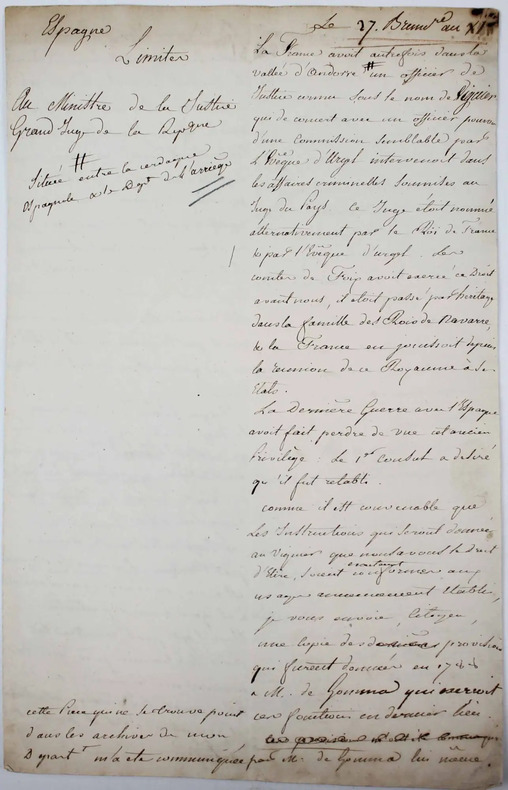 Espagne
Limites
Au Ministre de la Justice
Grand Juge de la Repque
#
Située entre la cerdagne
espagnole & le Dept de l'arriège
Le 27. Brumre an XI
La France avoit autrefois dans la
vallée d'Andorre # un officier de
Justice connu sous le nom de Viguier
qui de concert avec un officier pourvu
d'une commission semblable par
L'Evêque d'Urgel intervenoit dans
les affaires criminelles soumises au
Juge du Pays. Ce Juge étoit nommé
alternativement par le Roi de France
& par l'Evêque d'urgel. Les
comtes de Foix avoit exercé ce Droit
avant nous, il étoit passé par héritage
dans la famille des Rois de Navarre,
& la France en jouissoit depuis
la reunion de ce Royaume à ses
Etats.
La Dernière Guerre avec l'Espagne
avoit fait perdre de vue cet ancien
Privilège : Le 1er Consul a desiré
qu'il fut retabli.
comme il est convenable que
Les Instructions qui seront données
au Viguier que nous avons le Droit
d'élire, soient conformes aux
usages anciennement établis,
je vous envoie, Citoyen,
une copie des provisions
qui furent données en 1788
à M. de Gomma qui exerçoit
ces fonctions en dernier lieu.
cette Pièce qui ne se trouve point
dans les archives de mon
Départt m'a été communiquée par M. de Gomma lui même.